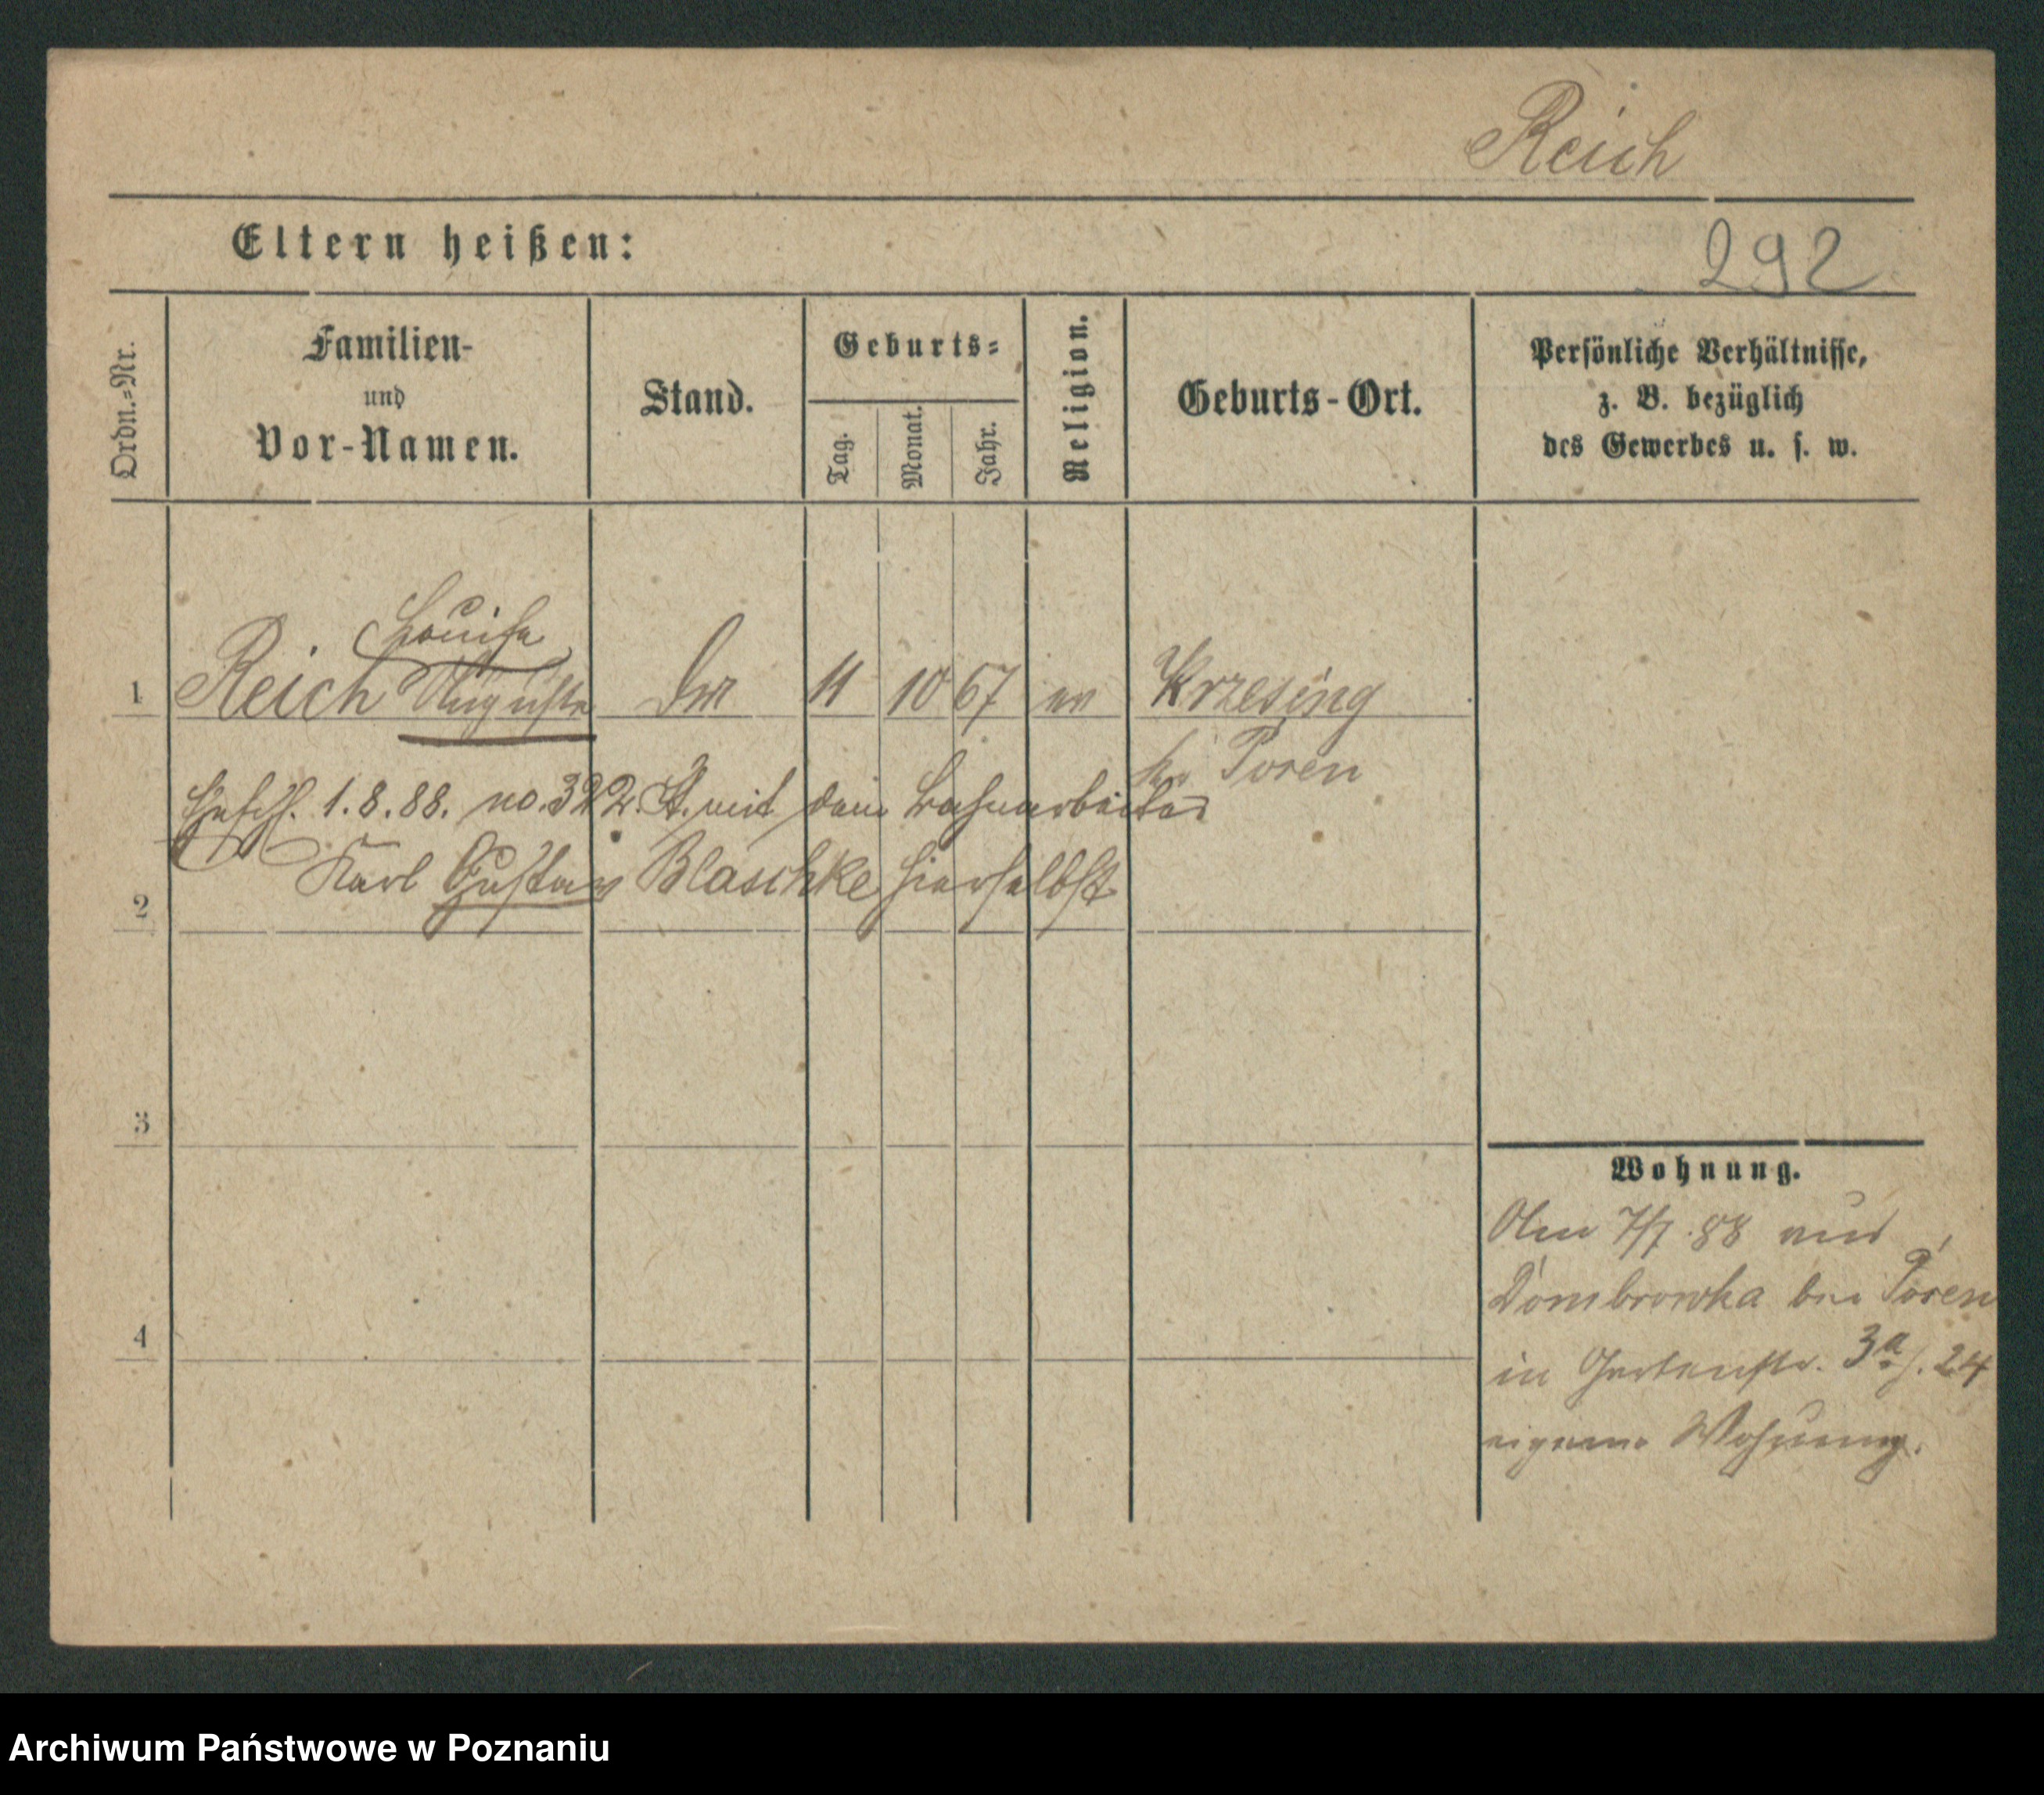 Reich
Eltern heißen:
292
Ordn.=Nr.
Familien-
und
Vor-Namen.
Stand.
Geburts=
Tag.
Monat.
Jahr.
Religion.
Geburts-Ort.
Persönliche Verhältnisse,
z. B. bezüglich
des Gewerbes u. s. w.
Louise
1 Reich Auguste 11 10 67 ev Krzesing
Posen
1.8.88. no. 322. St. mit dem Bahnarbeiter
Karl Gustav Blaschke hierselbst
2
3
4
Wohnung.
Am 7/7. 88 aus
Dombrowka bei Posen
in Gartenstr. 3a 24
eigene Wohnung.
Archiwum Państwowe w Poznaniu